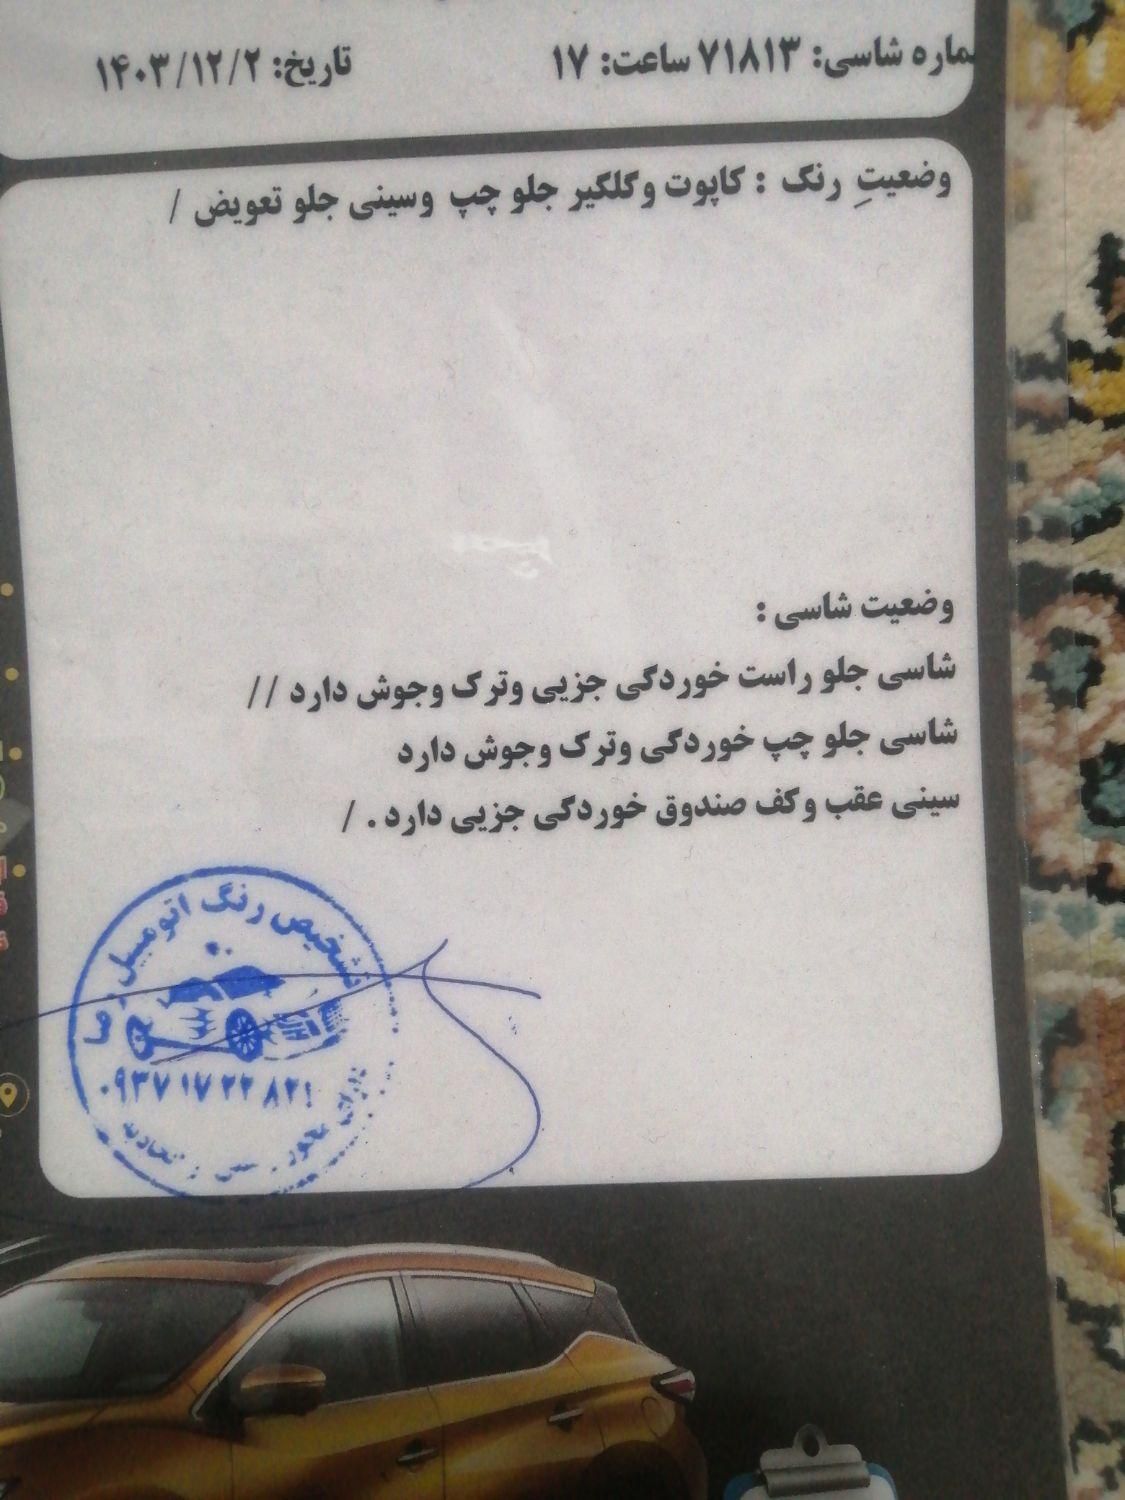 شماره شاسی: ۷۱۸۱۳ ساعت: ۱۷ تاریخ: ۱۴۰۳/۱۲/۲
وضعیتِ رنگ : کاپوت وگلگیر جلو چپ وسینی جلو تعویض /
وضعیت شاسی :
شاسی جلو راست خوردگی جزیی وترک وجوش دارد //
شاسی جلو چپ خوردگی وترک وجوش دارد
سینی عقب وکف صندوق خوردگی جزیی دارد . /
تشخیص رنگ اتومبیل رضا
۰۹۳۷۱۷۲۲۸۲۱